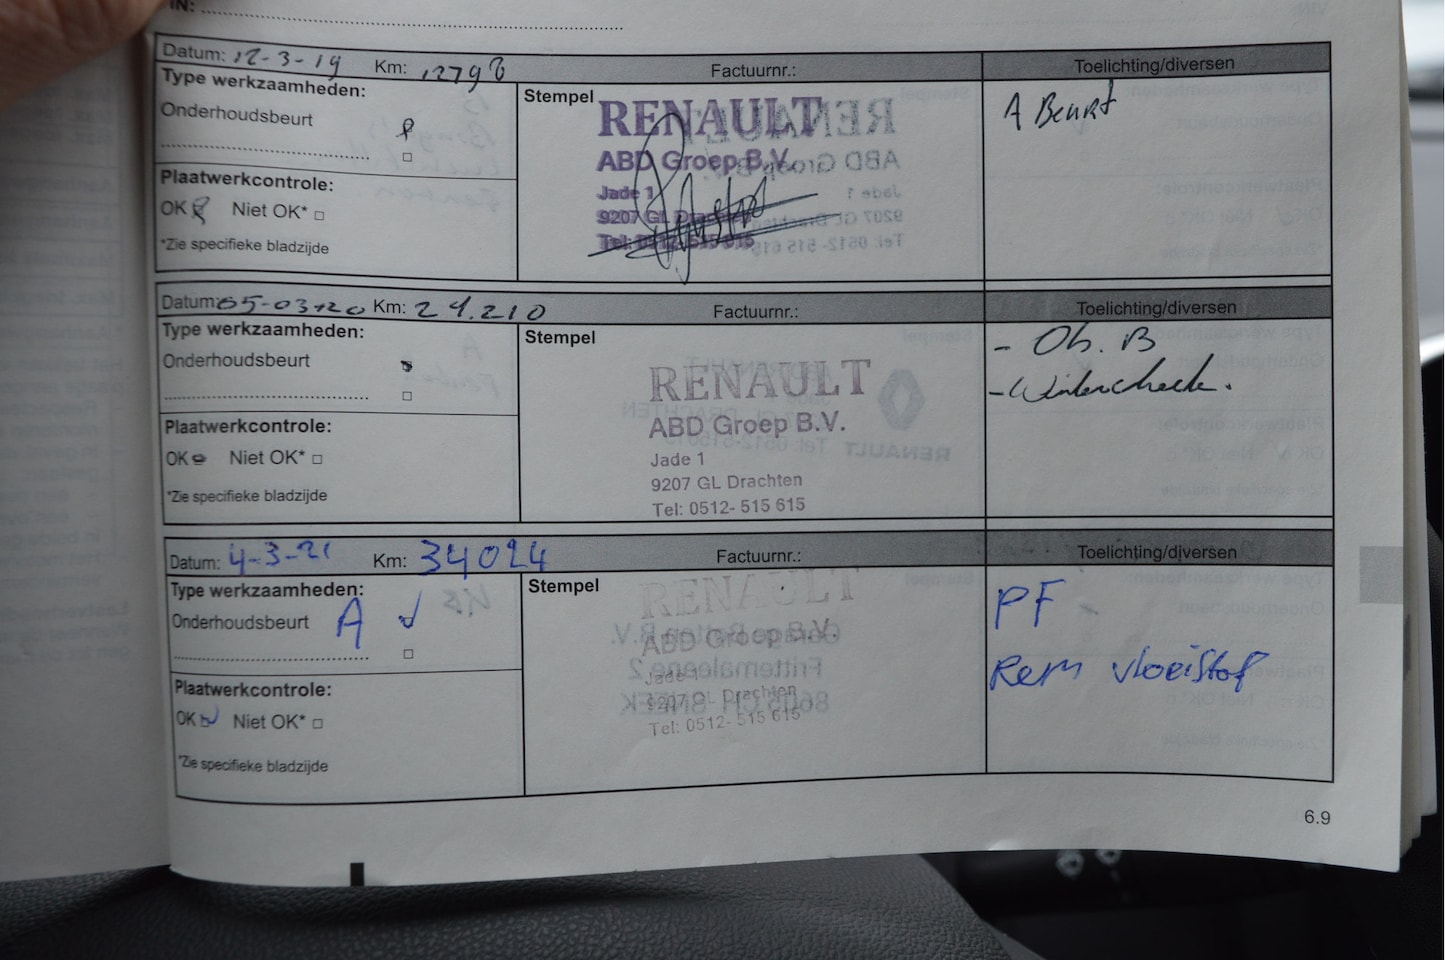 IN:
Datum: 12-3-19 Km: 12798 Factuurnr.: Toelichting/diversen
Type werkzaamheden:
Onderhoudsbeurt
Plaatwerkcontrole:
OK Niet OK*
*Zie specifieke bladzijde
Stempel
RENAULT
ABD Groep B.V.
Jade 1
9207 GL Drachten
Tel: 0512- 515 615
A Beurt
Datum: 05-03-20 Km: 24.210 Factuurnr.: Toelichting/diversen
Type werkzaamheden:
Onderhoudsbeurt
Plaatwerkcontrole:
OK Niet OK*
*Zie specifieke bladzijde
Stempel
RENAULT
ABD Groep B.V.
Jade 1
9207 GL Drachten
Tel: 0512- 515 615
- Oh. B
- Wintercheck.
Datum: 4-3-21 Km: 34024 Factuurnr.: Toelichting/diversen
Type werkzaamheden:
Onderhoudsbeurt A
Plaatwerkcontrole:
OK Niet OK*
*Zie specifieke bladzijde
Stempel
RENAULT
ABD Groep B.V.
Jade 1
9207 GL Drachten
Tel: 0512- 515 615
PF
Rem vloeistof
6.9